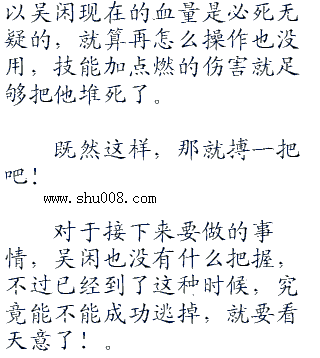 以吴闲现在的血量是必死无
疑的，就算再怎么操作也没
用，技能加点燃的伤害就足
够把他堆死了。
既然这样，那就搏一把
吧！
www.shu008.com
对于接下来要做的事
情，吴闲也没有什么把握，
不过已经到了这种时候，究
竟能不能成功逃掉，就要看
天意了！。